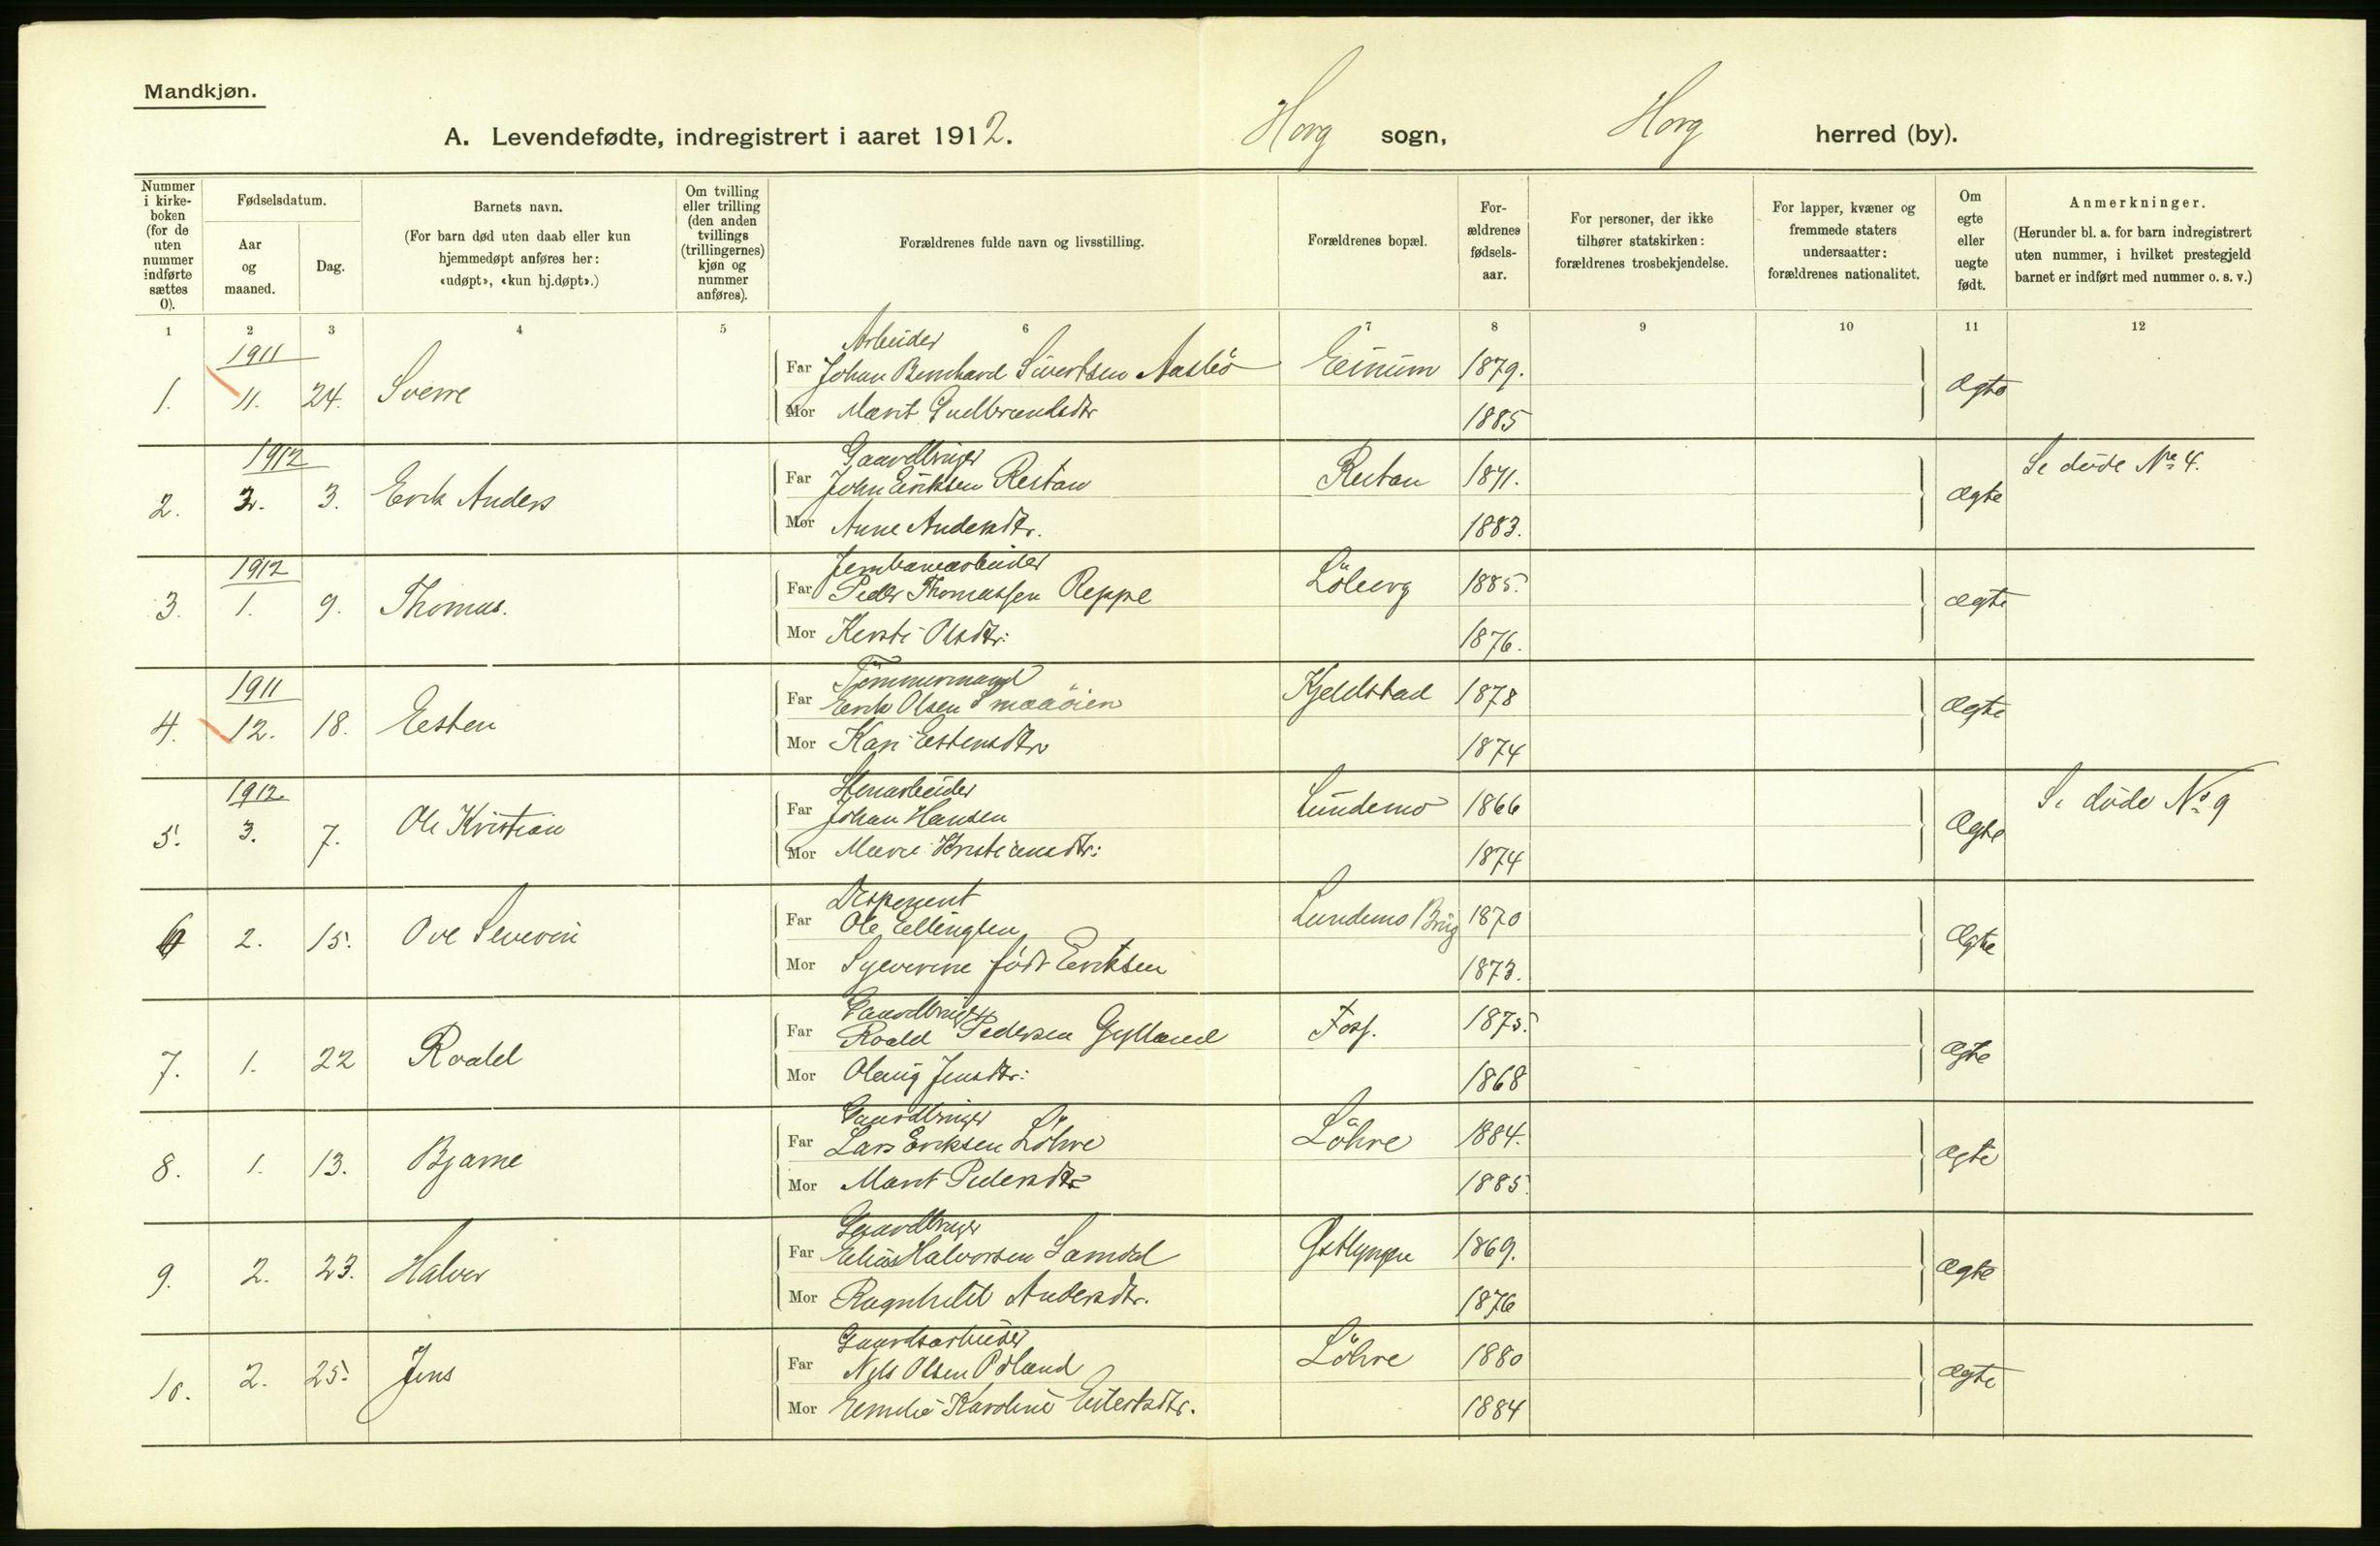 Mandkjøn.
A. Levendefødte, indregistrert i aaret 1912. Horg sogn, Horg herred (by).
Nummer i kirke-boken (for de uten nummer indførte sættes 0).
Fødselsdatum.
Aar og maaned.
Dag.
Barnets navn.
(For barn død uten daab eller kun hjemmedøpt anføres her: «udøpt», «kun hj.døpt».)
Om tvilling eller trilling (den anden tvillings (trillingernes) kjøn og nummer anføres).
Forældrenes fulde navn og livsstilling.
Forældrenes bopæl.
For-ældrenes fødsels-aar.
For personer, der ikke tilhører statskirken: forældrenes trosbekjendelse.
For lapper, kvæner og fremmede staters undersaatter: forældrenes nationalitet.
Om egte eller uegte født.
Anmerkninger.
(Herunder bl. a. for barn indregistrert uten nummer, i hvilket prestegjeld barnet er indført med nummer o. s. v.)
1 2 3 4 5 6 7 8 9 10 11 12
1911 Arbeider
1. 11. 24. Sverre Far Johan Bernhard Sivertsen Aasbö 1879. Ægte
Mor Marit Gudbrandsdtr 1885
1912 Gaardbruger
2. 2. 3. Erik Anders Far John Eriksen Restan Restan 1871. Ægte Se døde No 4.
Mor Anne Andersdtr. 1883.
1912 Jernbanearbeider
3. 1. 9. Thomas. Far Peder Thomassen Reppe Löberg 1885. Ægte
Mor Kersti Olsdtr: 1876.
1911 Tømmermand
4. 12. 18. Esten Far Erik Olsen Smaaöien Kjeldstad 1878 Ægte
Mor Kari Estensdtr 1874
1912. Stenarbeider
5. 3. 7. Ole Kristian Far Johan Hansen Lundemo 1866 Ægte Se døde No 9
Mor Marie Kristiansdtr: 1874
Disponent
6 2. 15. Ove Severin Far Ole Ellingsen Lundemo Brug 1870 Ægte
Mor Syverine født Eriksen 1873.
Gaardbruger
7. 1. 22 Roald Far Roald Pedersen Gylland Foss. 1875. Ægte
Mor Olaug Jensdtr: 1868
Gaardbruger
8. 1. 13. Bjarne Far Lars Eriksen Löhre Löhre 1884. Ægte
Mor Marit Pedersdtr 1885.
Gaardbruger
9. 2. 23. Halvor Far Elias Halvorsen Samdal 1869. Ægte
Mor Ragnhild Andersdtr. 1876
Gaardsarbeider
10. 2. 25. Jens Far Nils Olsen Löhre 1880 Ægte
Mor Emelie Karoline Eilertsdtr. 1884